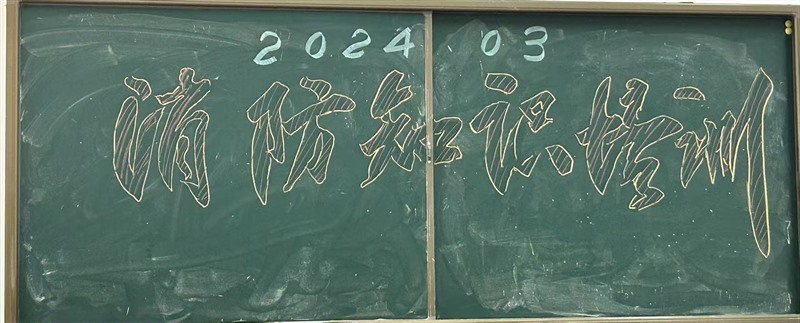 2024 03
消防知识培训